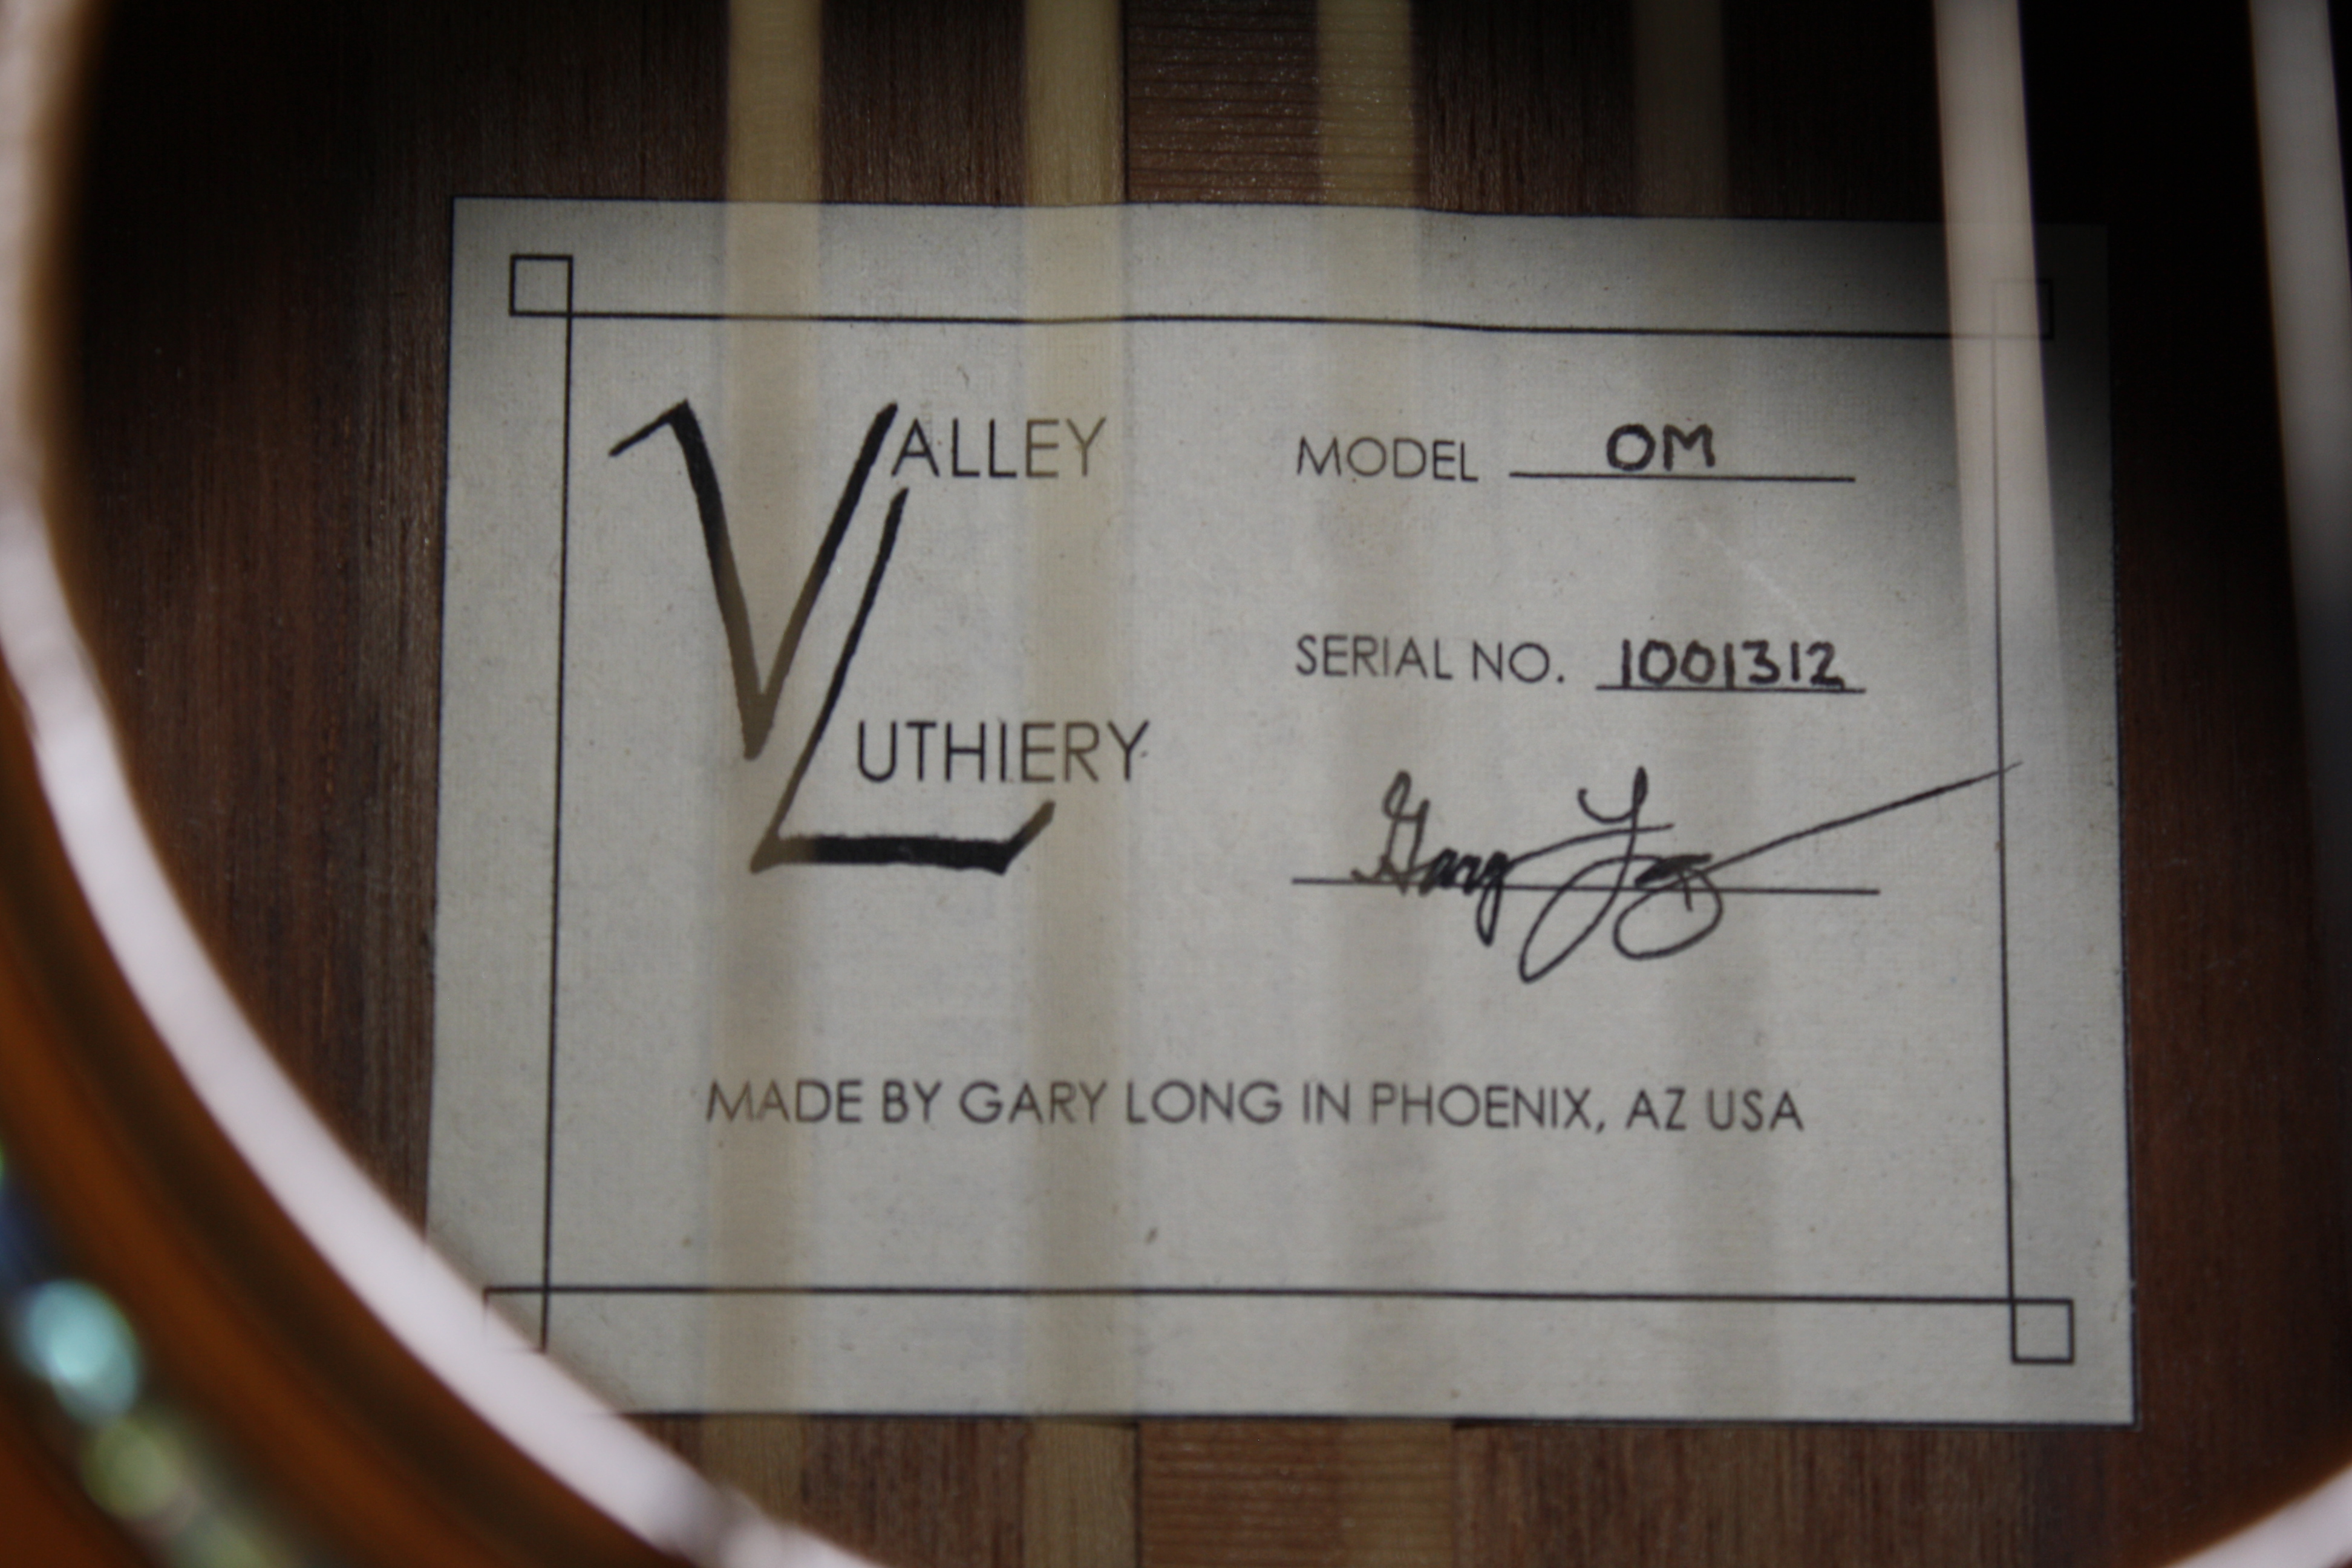 VALLEY
LUTHIERY
MODEL OM
SERIAL NO. 1001312
Gary Long
MADE BY GARY LONG IN PHOENIX, AZ USA